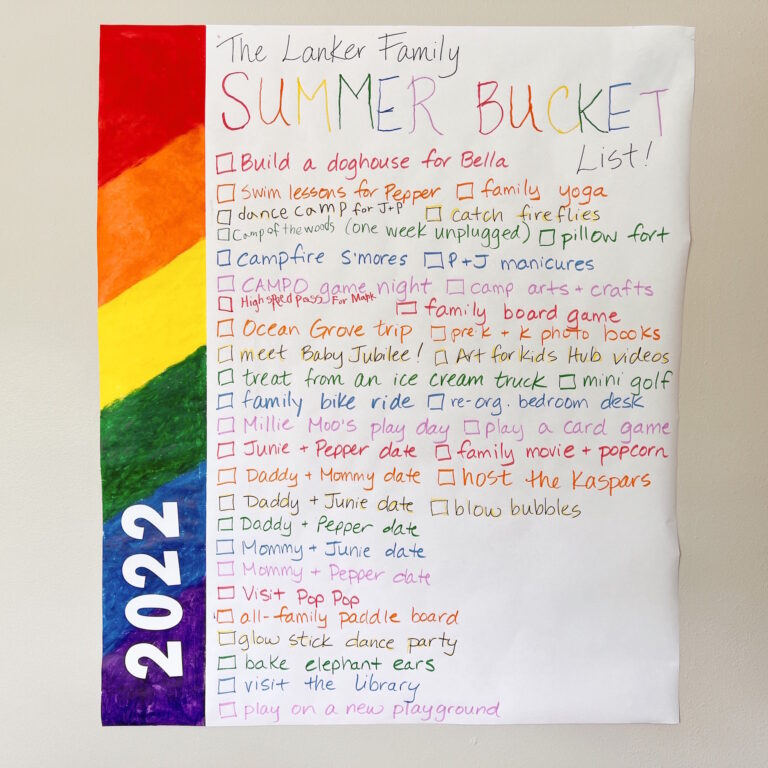 The Lanker Family
SUMMER BUCKET
List!
Build a doghouse for Bella
Swim lessons for Pepper family yoga
dance camp for J+P catch fireflies
Camp of the woods (one week unplugged) pillow fort
campfire s'mores P+J manicures
CAMPO game night camp arts + crafts
High speed pass For Mark family board game
Ocean Grove trip pre-k + k photo books
meet Baby Jubilee! Art for Kids Hub videos
treat from an ice cream truck mini golf
family bike ride re-org. bedroom desk
Millie Moo's play day play a card game
Junie + Pepper date family movie + popcorn
Daddy + Mommy date host the Kaspars
Daddy + Junie date blow bubbles
Daddy + Pepper date
Mommy + Junie date
Mommy + Pepper date
Visit Pop Pop
all-family paddle board
glow stick dance party
bake elephant ears
visit the library
play on a new playground
2022